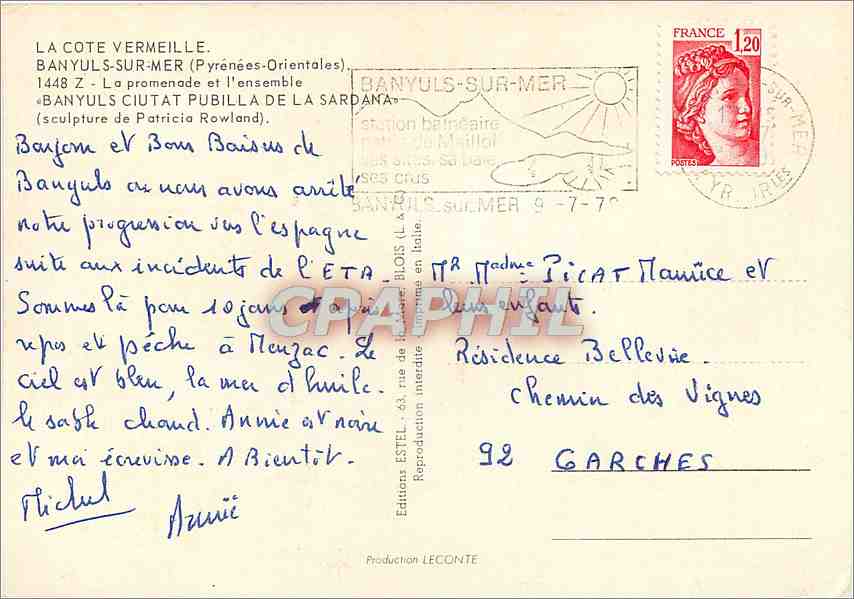 LA COTE VERMEILLE.
BANYULS-SUR-MER (Pyrénées-Orientales).
1448 Z - La promenade et l'ensemble
«BANYULS CIUTAT PUBILLA DE LA SARDANA»
(sculpture de Patricia Rowland).
FRANCE 1,20
POSTES
BANYULS-SUR-MER
station balnéaire
patrie de Maillol
ses sites, sa baie
ses crus
BANYULS sur MER 9 -7-79
Bonjour et Bons Baisers de
Banyuls ou nous avons arrêté
notre progression vers l'espagne
suite aux incidents de l'ETA.
Sommes là pour 10 jours et après
repos et pêche à Meuzac. Le
ciel est bleu, la mer d'huile.
le sable chaud. Annie est noire
et moi écrevisse. A Bientôt.
Michel
Annie
Editions ESTEL - 63, rue de la BLOIS (L. & C.)
Reproduction interdite - Imprimé en Italie.
CPAPHIL
Mr Madme PICAT Maurice et
leurs enfants.
Résidence Bellevue.
Chemin des Vignes
92 GARCHES
Production LECONTE